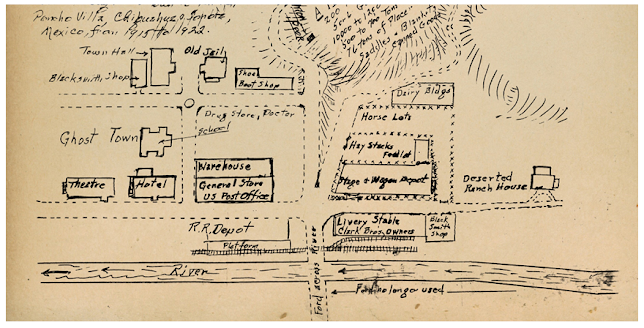 Pancho Villa, Chihuahua, 
Mexico, from 1915 to 1922.
200
1000 to
500 to 700 Tom
Tons of Place
Saddles, Blankets
Canned Goods
Town Hall
Old Jail
Blacksmith Shop
Shoe
Boot Shop
Drug Store, Doctor
School
Ghost Town
Theatre
Hotel
Warehouse
General Store
US Post Office
Dairy Bldgs
Horse Lots
Hay Stacks
Feed Lot
Stage & Wagon Depot
Deserted
Ranch House
R.R. Depot
Platform
Livery Stable
Clark Bros. Owners
Black
Smith
Shop
River
Ford across River
Ford no longer used